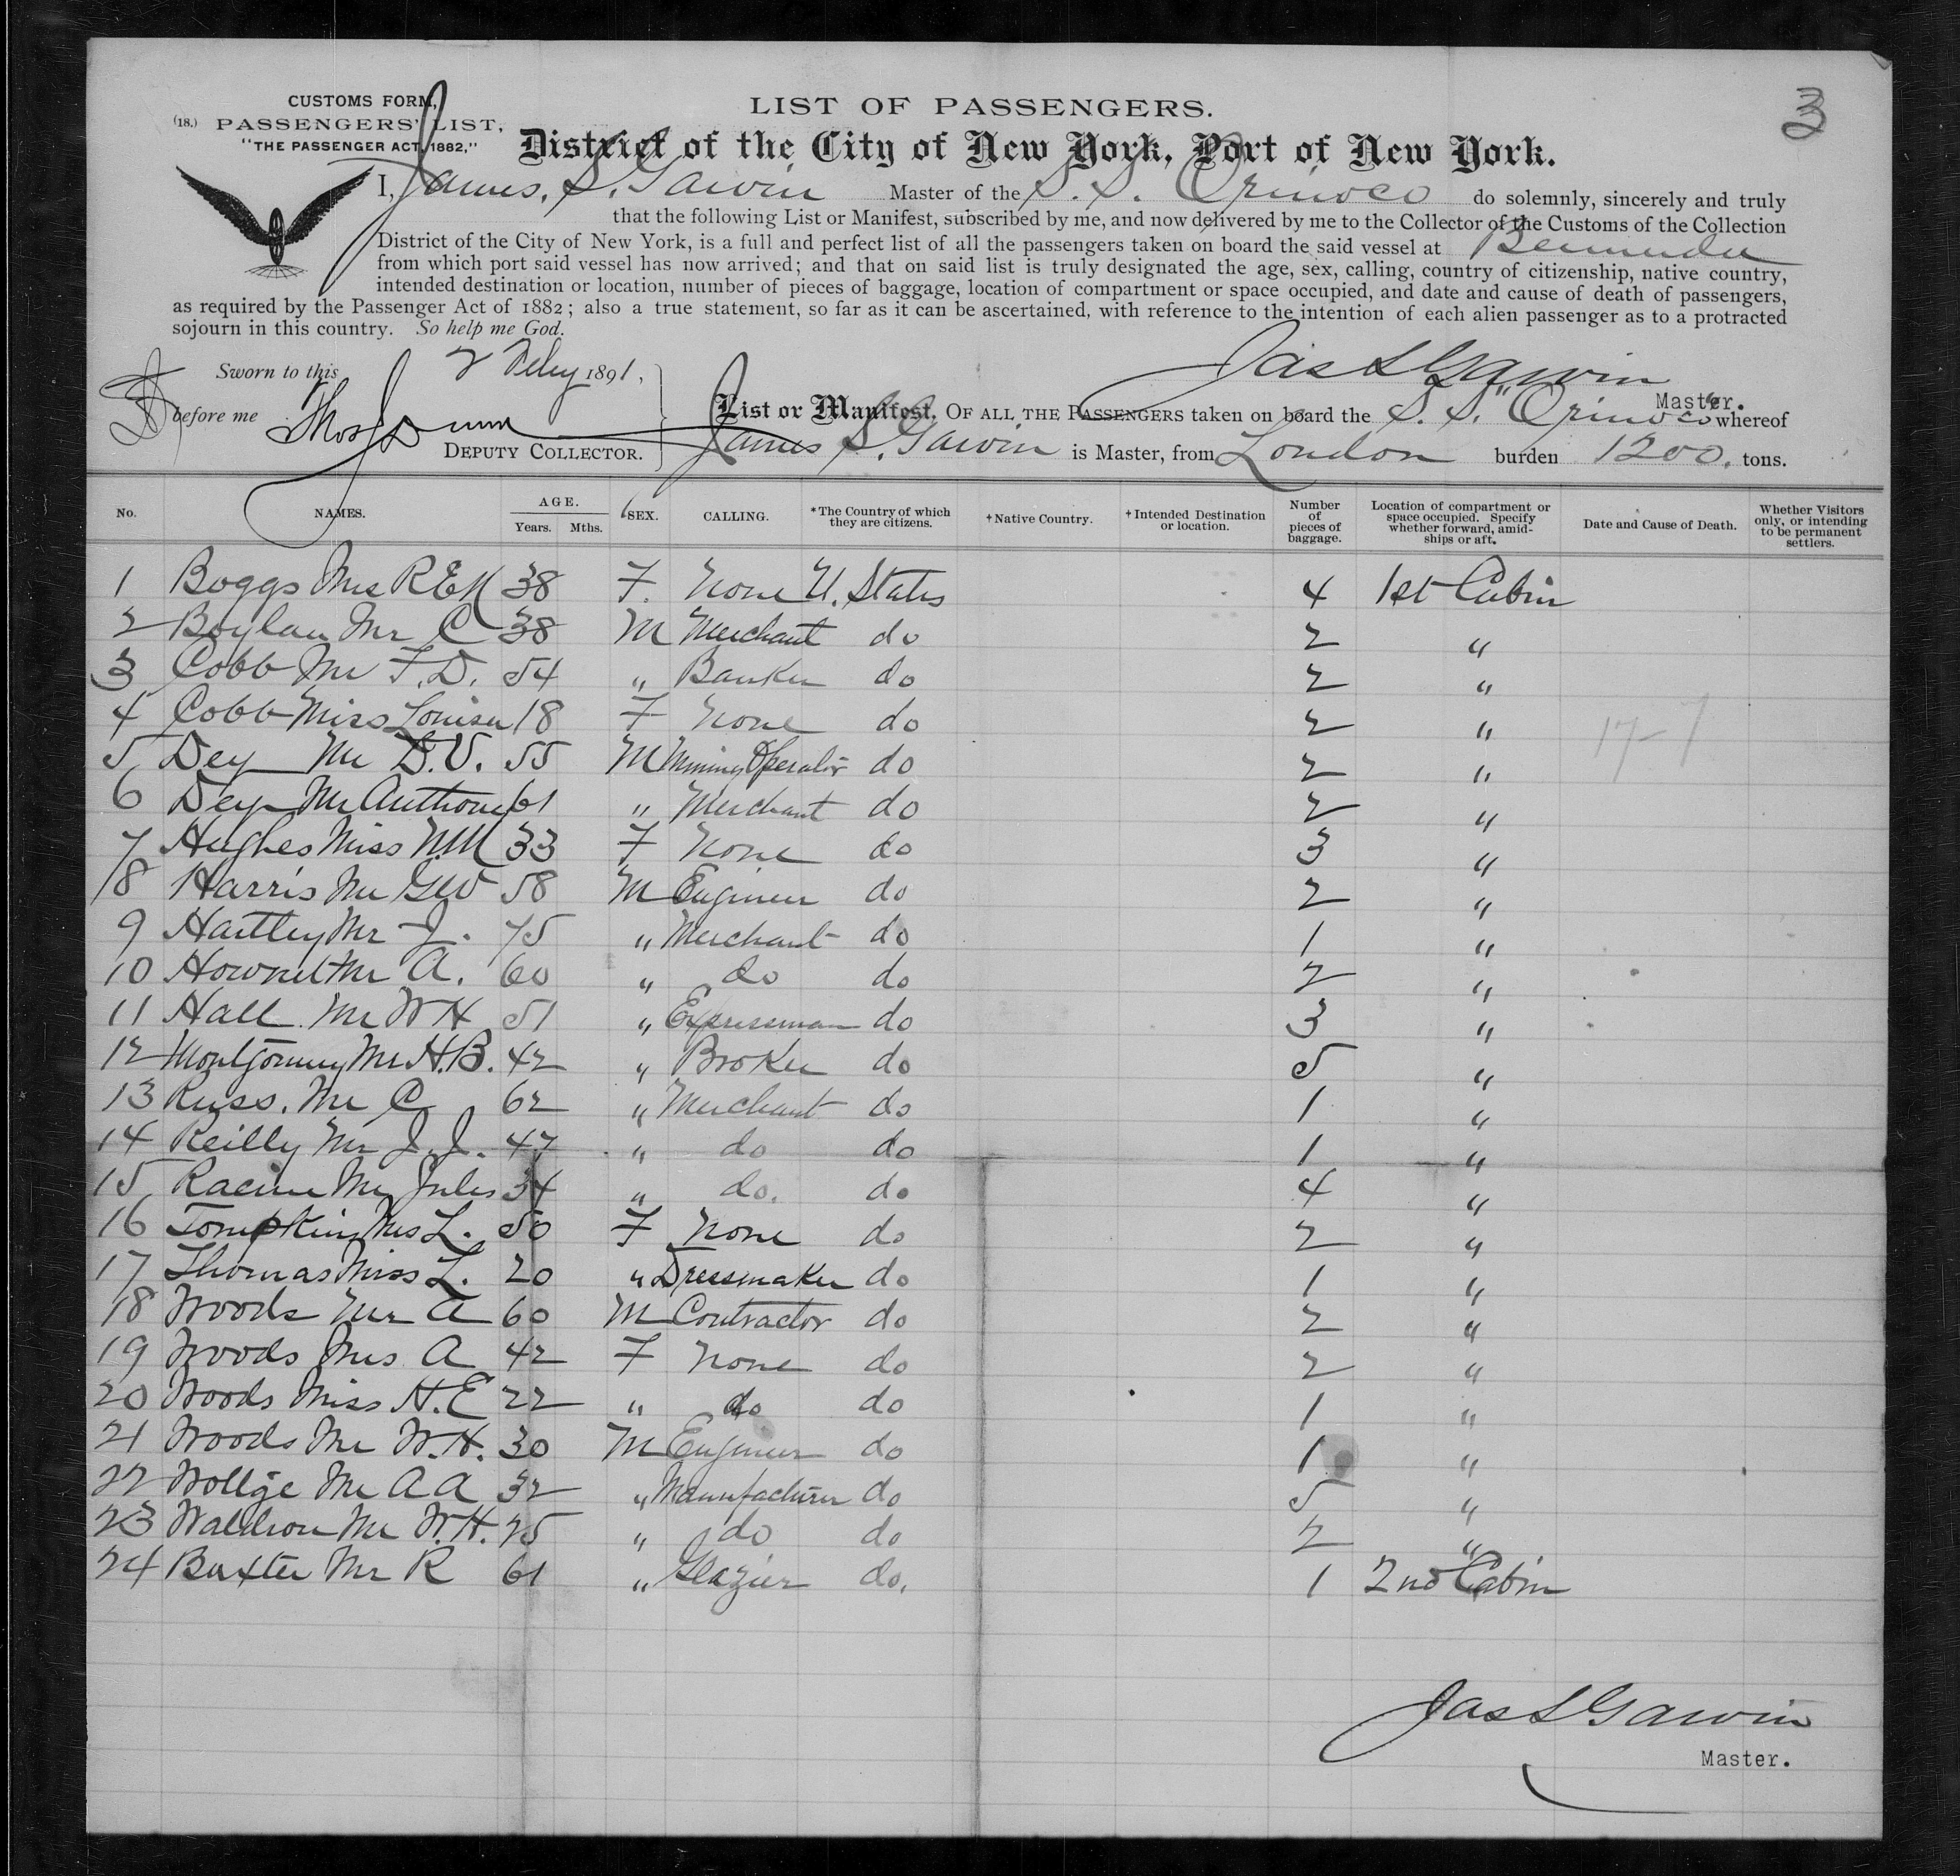 3
CUSTOMS FORM,
(18.) PASSENGERS' LIST,
"THE PASSENGER ACT, 1882,"
LIST OF PASSENGERS.
District of the City of New York, Port of New York.
I, James. S. Garvin Master of the S. S. Orinoco do solemnly, sincerely and truly
that the following List or Manifest, subscribed by me, and now delivered by me to the Collector of the Customs of the Collection
District of the City of New York, is a full and perfect list of all the passengers taken on board the said vessel at Bermuda
from which port said vessel has now arrived; and that on said list is truly designated the age, sex, calling, country of citizenship, native country,
intended destination or location, number of pieces of baggage, location of compartment or space occupied, and date and cause of death of passengers,
as required by the Passenger Act of 1882; also a true statement, so far as it can be ascertained, with reference to the intention of each alien passenger as to a protracted
sojourn in this country. So help me God.
Sworn to this 2 Feby 1891,
Jas S Garvin
Master.
before me Thos J Dunn
DEPUTY COLLECTOR.
List or Manifest, OF ALL THE PASSENGERS taken on board the S. S. "Orinoco" whereof
James S. Garvin is Master, from London burden 1200. tons.
No. NAMES. AGE. Years. Mths. SEX. CALLING. *The Country of which they are citizens. †Native Country. †Intended Destination or location. Number of pieces of baggage. Location of compartment or space occupied. Specify whether forward, amidships or aft. Date and Cause of Death. Whether Visitors only, or intending to be permanent settlers.
1 Boggs Mrs R E M 38 F. None U. States 4 1st Cabin
2 Boylan Mr C 38 M Merchant do 2 "
3 Cobb Mr F. D. 54 " Banker do 2 "
4 Cobb Miss Louisa 18 F None do 2 "
17-7
5 Dey Mr D. V. 55 M Mining Operator do 2 "
6 Dey Mr Anthony 61 " Merchant do 2 "
7 Hughes Miss N M 33 F None do 3 "
8 Harris Mr G W 58 M Engineer do 2 "
9 Hartley Mr J. 75 " Merchant do 1 "
10 Mr A. 60 " do do 2 "
11 Hall Mr W H 51 " Expressman do 3 "
12 Montgomery Mr H. B. 42 " Broker do 5 "
13 Russ. Mr C 62 " Merchant do 1 "
14 Reilly Mr J. J. 47 " do do 1 "
15 Racine Mr Jules 34 " do. do 4 "
16 Tompkins Mrs L. 50 F None do 2 "
17 Thomas Miss L. 20 " Dressmaker do 1 "
18 Woods Mr A 60 M Contractor do 2 "
19 Woods Mrs A 42 F None do 2 "
20 Woods Miss H. E 22 " do do 1 "
21 Woods Mr W. H. 30 M Engineer do 1 "
22 Mr A A 32 " Manufacturer do 5 "
23 Waldron Mr W. H. 75 " do do 2 "
24 Baxter Mr R 61 " Glazier do. 1 2nd Cabin
Jas S Garvin
Master.